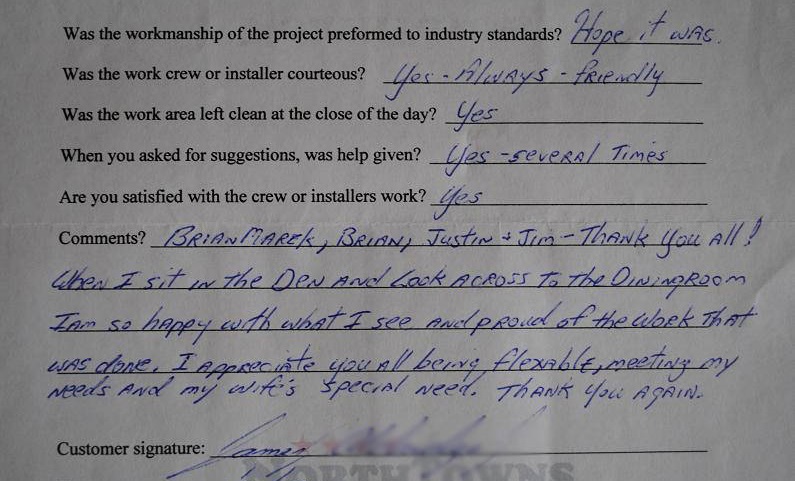 Was the workmanship of the project preformed to industry standards? Hope it was.
Was the work crew or installer courteous? Yes - Always - friendly
Was the work area left clean at the close of the day? Yes
When you asked for suggestions, was help given? Yes - several Times
Are you satisfied with the crew or installers work? Yes
Comments? Brian Marek, Brian, Justin + Jim - Thank you All!
When I sit in the Den and Look Across To the Diningroom
I am so happy with what I see and proud of the work That
was done. I appreciate you all being flexable, meeting my
needs and my wife's special need. Thank you again.
Customer signature: James
NORTHTOWNS